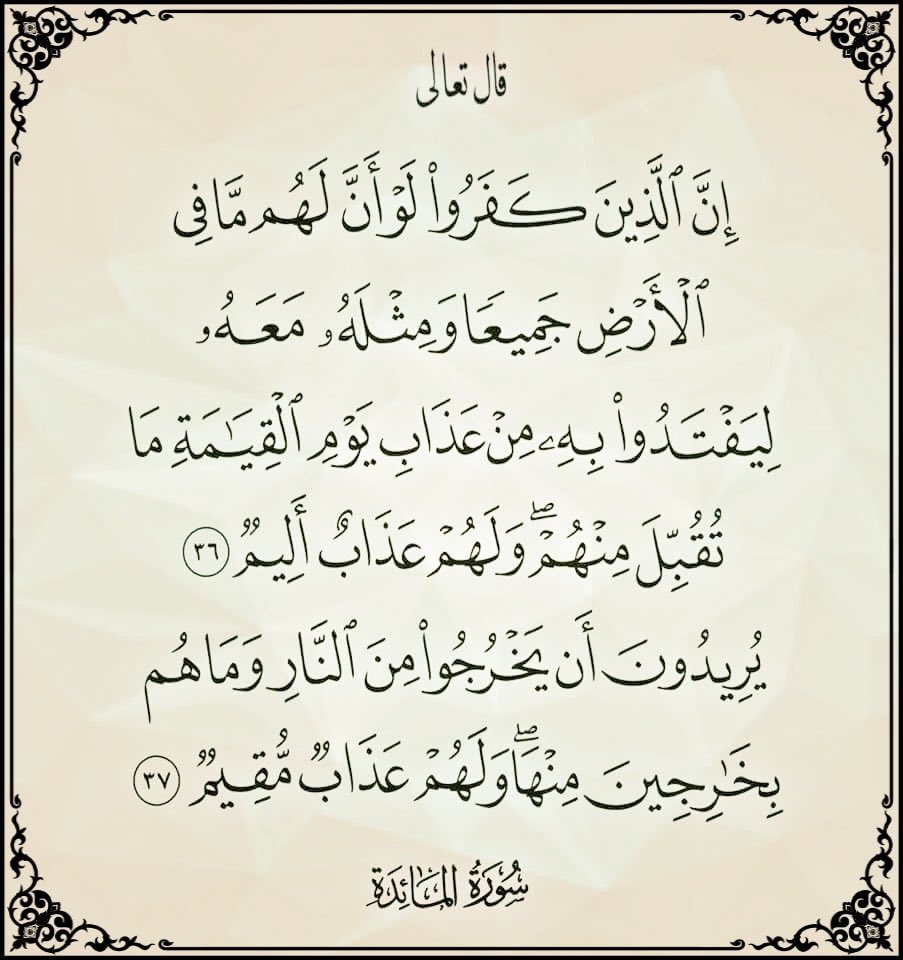 قال تعالى
إِنَّ ٱلَّذِينَ كَفَرُوا۟ لَوْ أَنَّ لَهُم مَّا فِى
ٱلْأَرْضِ جَمِيعًا وَمِثْلَهُۥ مَعَهُۥ
لِيَفْتَدُوا۟ بِهِۦ مِنْ عَذَابِ يَوْمِ ٱلْقِيَـٰمَةِ مَا
تُقُبِّلَ مِنْهُمْ ۖ وَلَهُمْ عَذَابٌ أَلِيمٌ ٣٦
يُرِيدُونَ أَن يَخْرُجُوا۟ مِنَ ٱلنَّارِ وَمَا هُم
بِخَـٰرِجِينَ مِنْهَا ۖ وَلَهُمْ عَذَابٌ مُّقِيمٌ ٣٧
سُورَةُ المَائِدَة